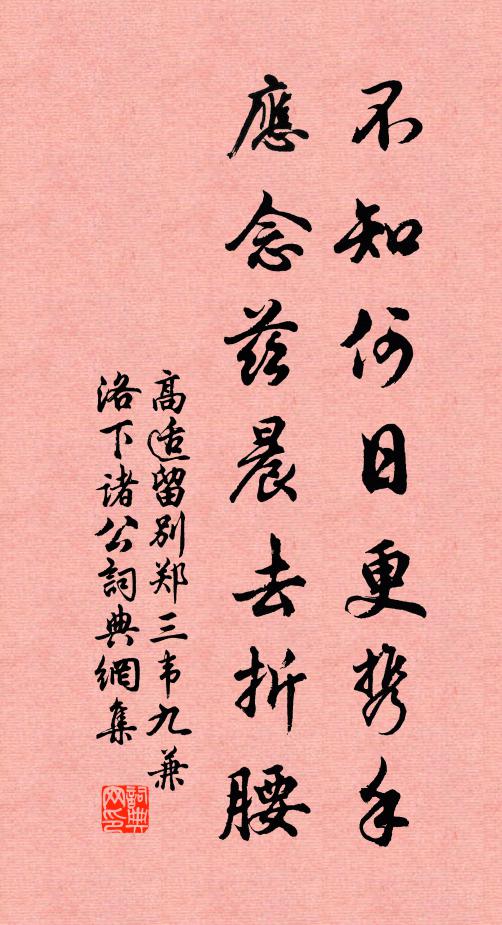 不知何日更携手
應念茲晨去折腰
高适留別郑三韦九兼
洛下诸公詞典網集
詞典网印